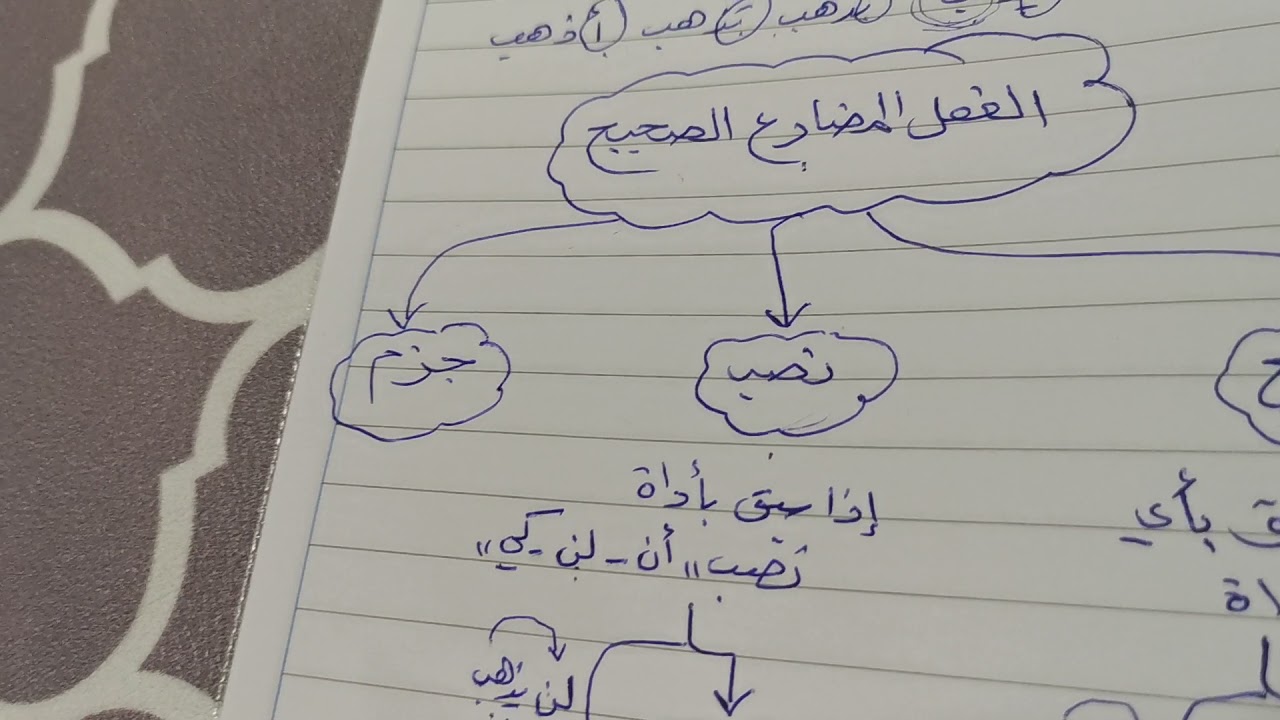 يذهب تذهب أذهب
الفعل المضارع الصحيح
نصب
جزم
إذا سبق بأداة
نصب " أن - لن - كي "
بأي
لن يذهب